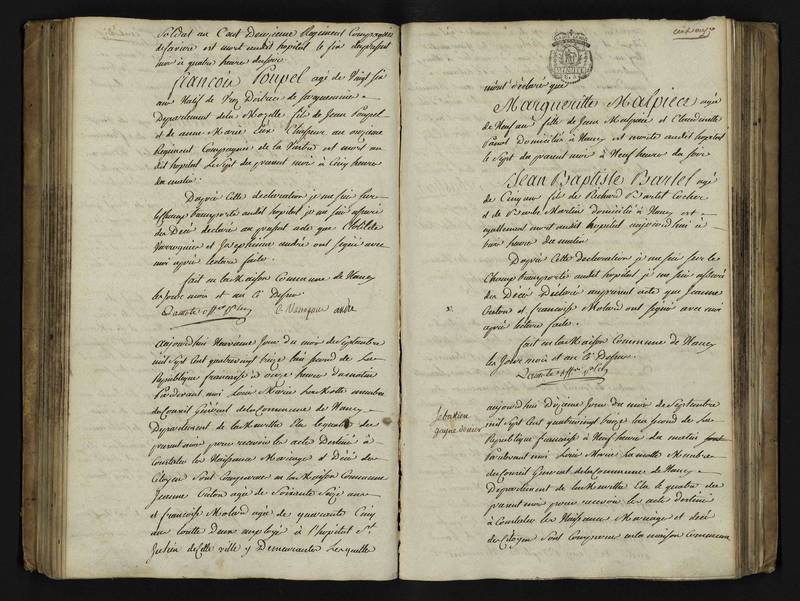 Soldat au Cent Deuxieme Regiment Compagnie
est mort audit hopital le six du present
moi à quatre heure du soire
francois Poupel agé de Vingt six
an Natif de District de Sarguemine
Departement de la Mozelle fils de Jean Poupel
et de anne Marie Chasseur au onzieme
Regiment Compagnie de la est mort au
dit hopital le Sept du present moi à Cinq heure
du matin.
Daprés Cette declaration je me suis sur
le Champ transporté audit hopital je me suis assuré
du Decé declaré au present acte que Clotilde
Varroquier et Josephinne andré ont signé avec
moi aprés lecture faite.
fait en la Maison Commune de Nancy
les Jour moi et an Ci Dessu
Lamotte off. p.blic C Varroquier andre
aujourdhui Neuvieme Jour du moi de Septembre
mil Sept Cent quatre vingt treize lan second de La
Republique francaise à onze heure du matin
Pardevant moi Loui Marie Lamotte membre
du Conseil Général de la Commune de Nancy
Departement de la Meurthe Elu le quatre du
present moi pour recevoir les acte Destiné à
Constater les Naissance Mariage et Décé des
Citoyen Sont Comparue en la Maison Commune
Jeanne Outon agée de Soixante Seize ans
et francoise Molard agée de quarante Cinq
an toutte deux employé à l'hopital St.
Julien de Cette ville y Demeurantes Lesquelle
cent onze
mont declaré que
Margueritte Malpiece agée
de Neuf an fille de Jean Malpiece et Claudinette
Domicilié à Nancy est morte audit hopital
le Sept du present moi à Neuf heure du soire
Jean Baptiste Bartel agé
de Cinq an fils de Richard Bartel Cocher
et de Barbe Martin domicilié à Nancy est
egallement mort audit hopital aujourdhui à
heure du matin
Daprés Cette declaration je me suis sur le
Champ transporté audit hopital je me suis assuré
du Decé Declaré au present acte que Jeanne
Outon et francoise Molard ont signé avec moi
aprés lecture faite.
fait en la Maison Commune de Nancy
les Jour moi et an Ci Dessu.
Lamotte off. p.blic
Sebastien
gagne denier
aujourdhui Dixieme Jour du moi de Septembre
mil Sept Cent quatre vingt treize lan second de La
Republique francaise à Neuf heure du matin
Pardevant moi Loui Marie Lamotte Membre
du Conseil General de la Commune de Nancy
Departement de la Meurthe Elu le quatre du
present moi pour recevoir les acte destiné
à Constater les Naissance Mariage et decé
des Citoyen Sont Comparue en la maison Commune